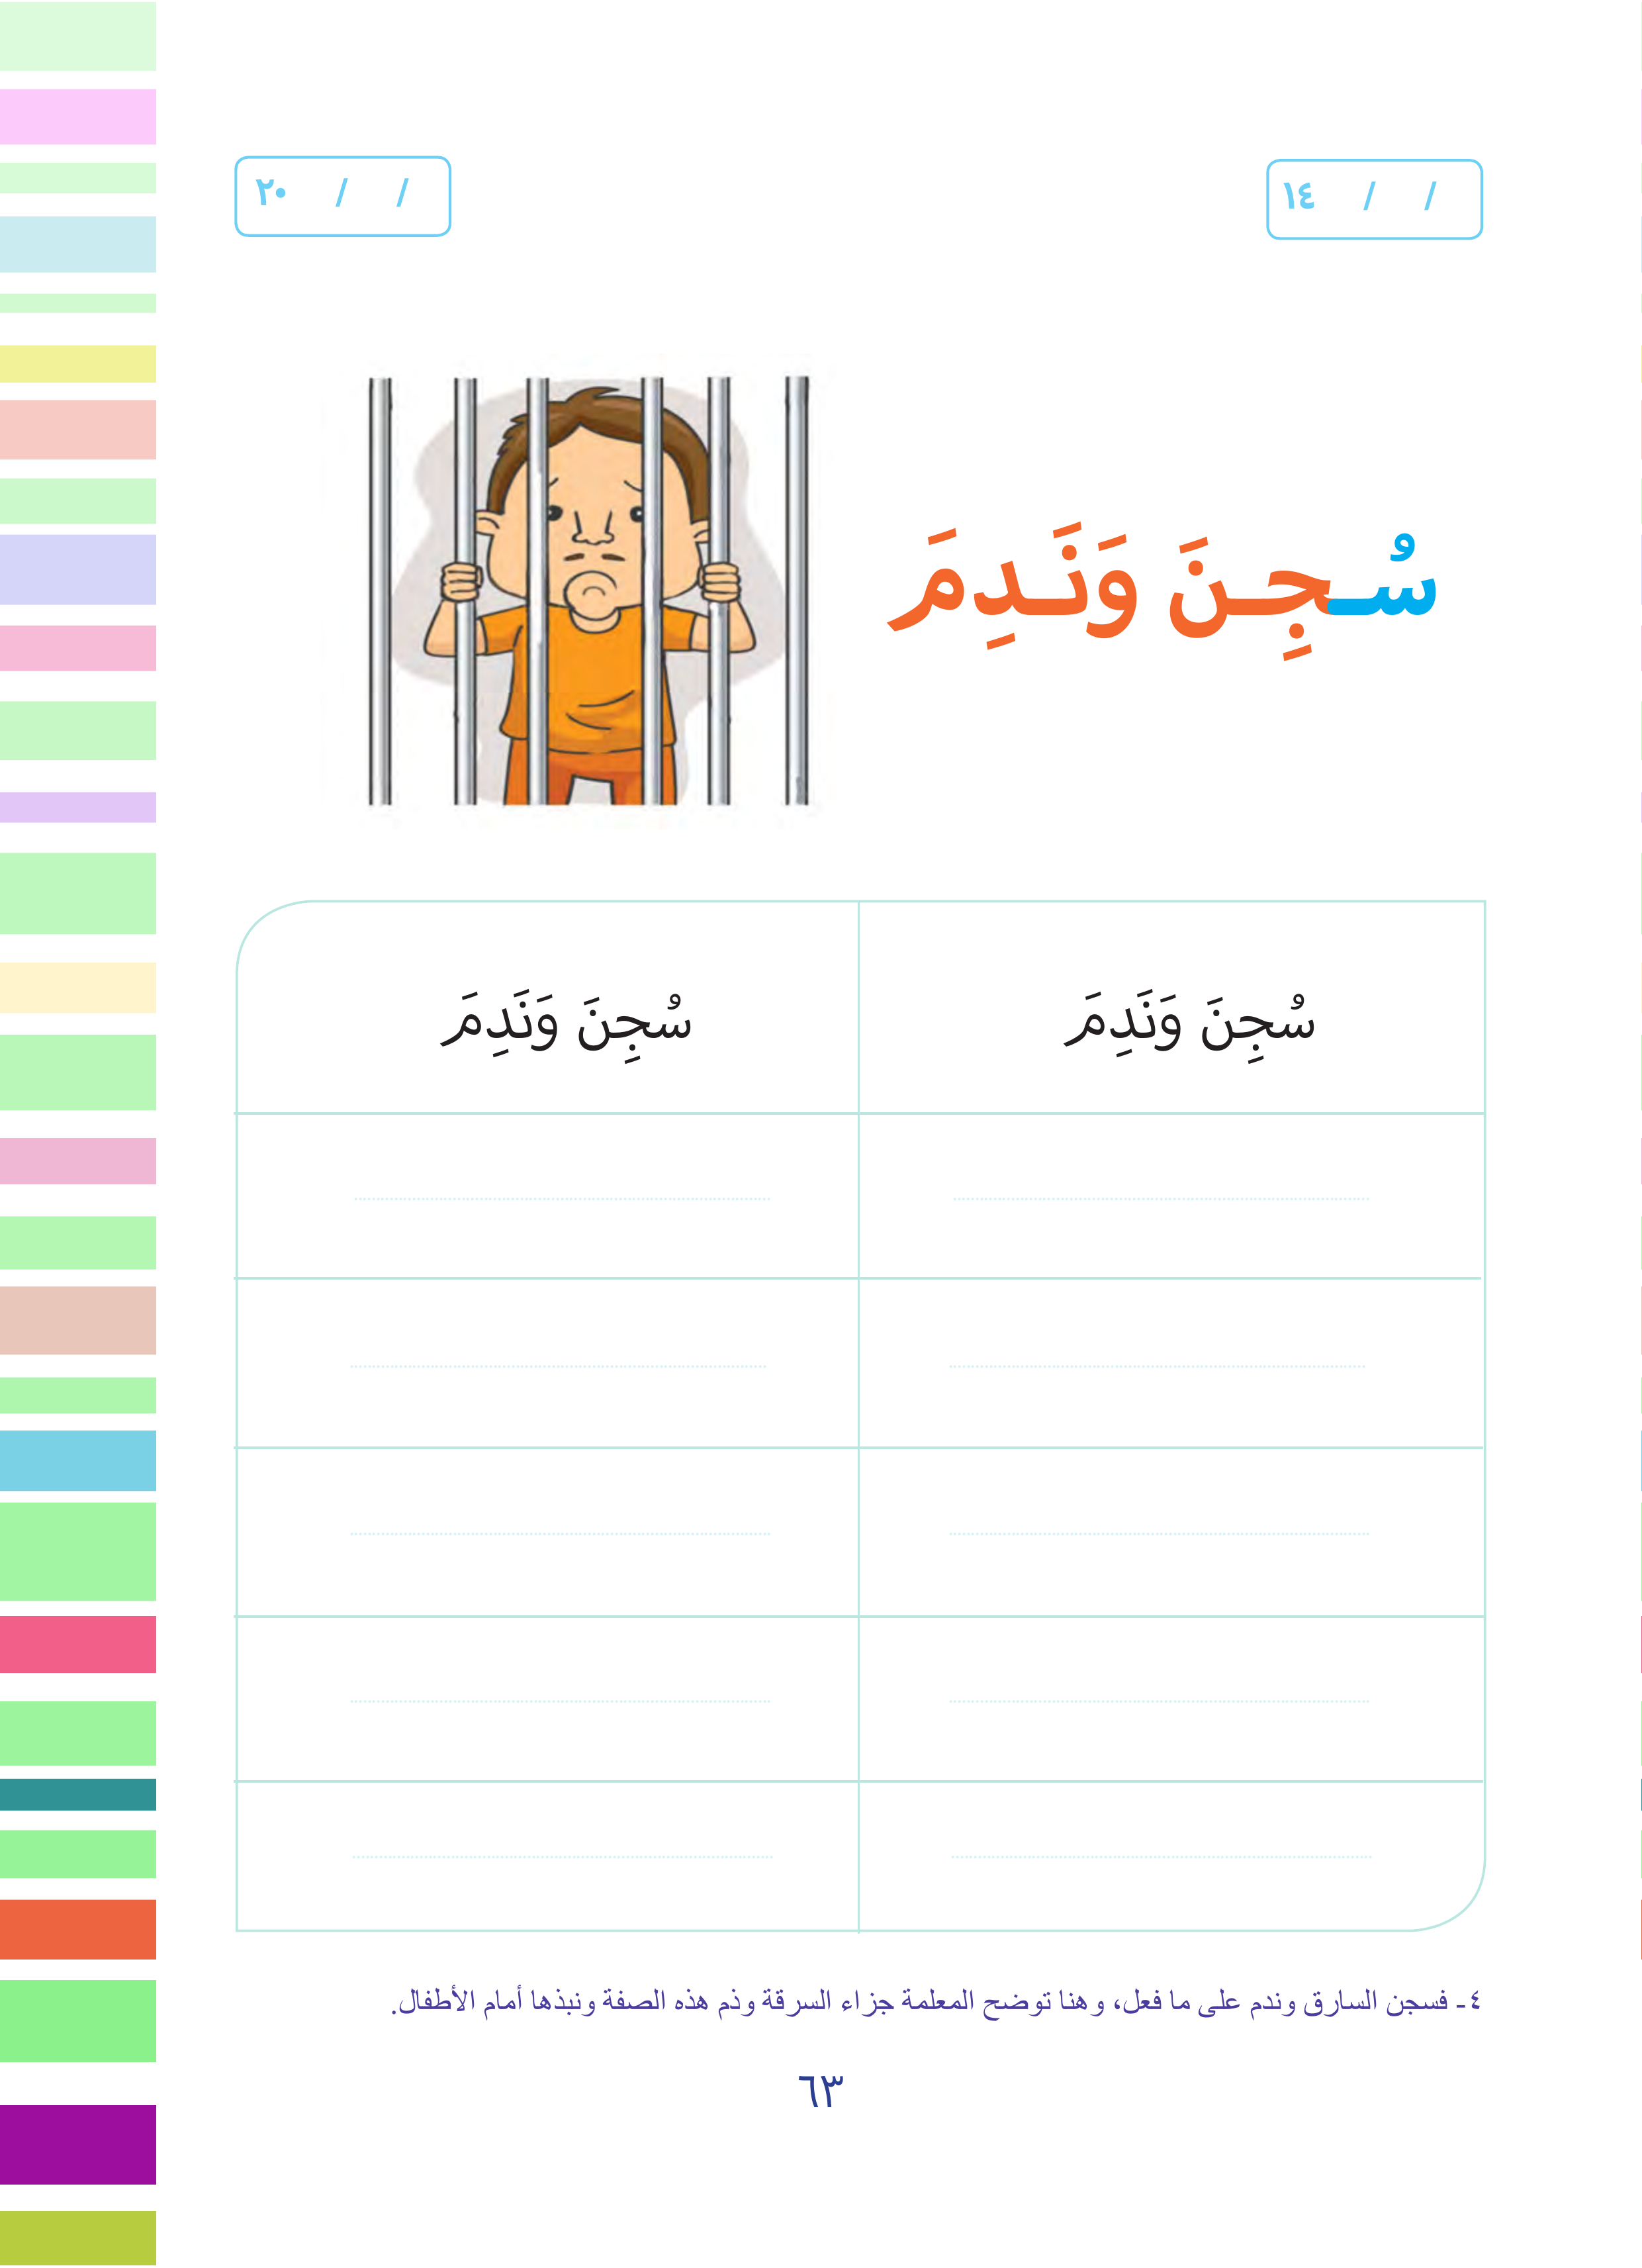 / / ١٤
/ / ٢٠
سُـجِـنَ وَنَـدِمَ
سُجِنَ وَنَدِمَ سُجِنَ وَنَدِمَ
٤- فسجن السارق وندم على ما فعل، وهنا توضح المعلمة جزاء السرقة وذم هذه الصفة ونبذها أمام الأطفال.
٦٣